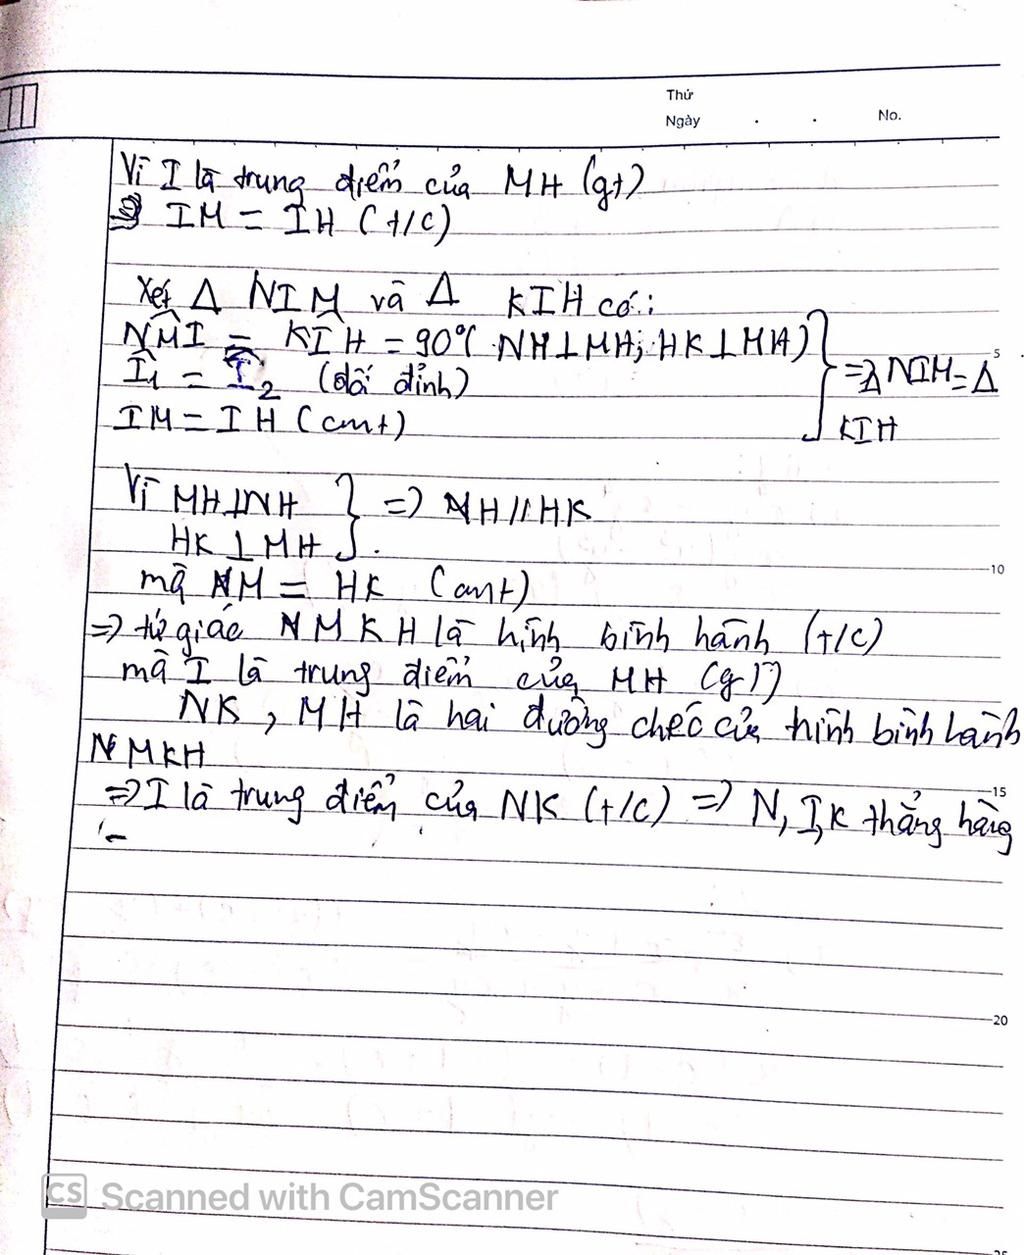 Thứ
Ngày . . No.
Vì I là trung điểm của MH (gt)
IM = IH (t/c)
Xét Δ NIM và Δ KIH có:
NMI = KIH = 90° (NM⊥MH; HK⊥MH)
I1 = I2 (đối đỉnh)
IM = IH (cmt)
} => Δ NIM = Δ
KIH
5
Vì MH⊥NH
HK ⊥ MH
} => NH // HK
10
mà NM = HK (cmt)
=> tứ giác NMKH là hình bình hành (t/c)
mà I là trung điểm của MH (gT)
NK, MH là hai đường chéo của hình bình hành
NMKH
=> I là trung điểm của NK (t/c) => N, I, K thẳng hàng
15
20
25
CS Scanned with CamScanner